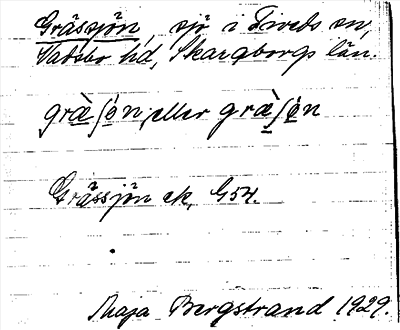 Grässjön, sjö i Tiveds sn,
Vadsbo hd, Skaraborgs län.
græ̀ʃön, eller græ̀ʃö̀n
Grässjön ek, G54.
Maja Bergstrand 1929.